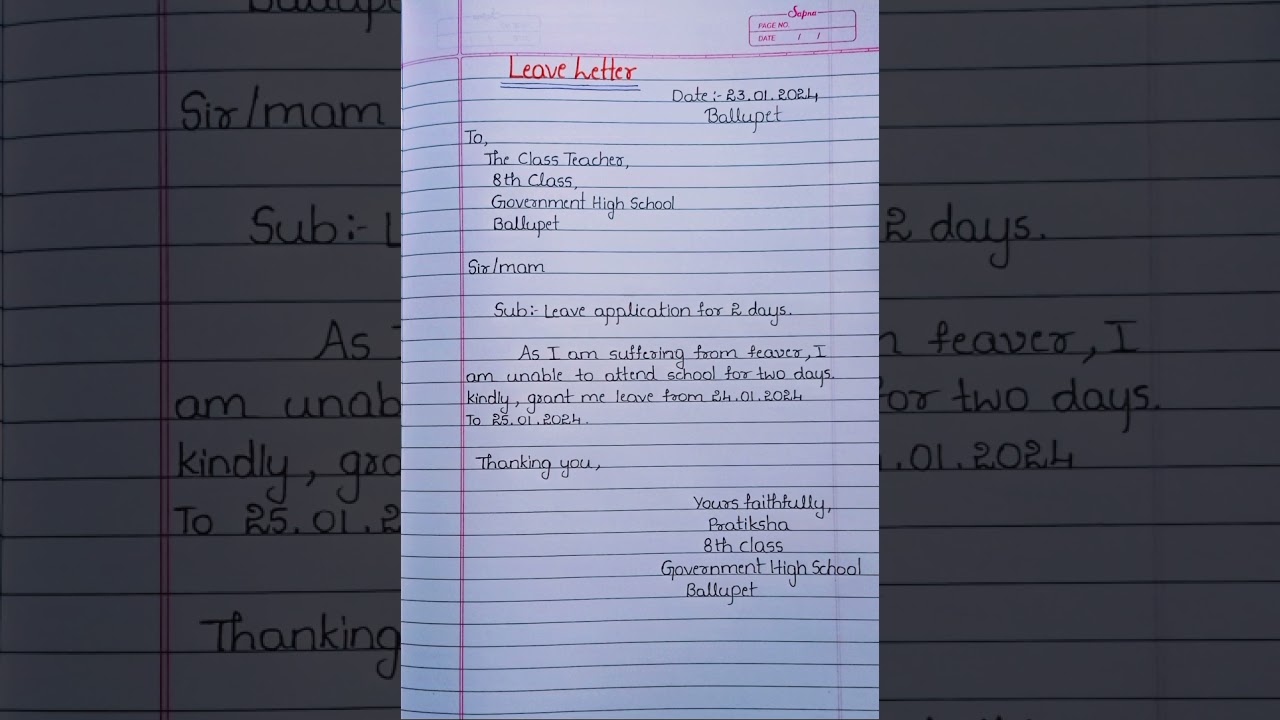 Sapna
PAGE NO.
DATE / /
Leave Letter
Date:- 23.01.2024
Ballupet
To,
The Class Teacher,
8th Class,
Government High School
Ballupet
Sir/mam
Sub:- Leave application for 2 days.
As I am suffering from feaver, I
am unable to attend school for two days.
kindly, grant me leave from 24.01.2024
To 25.01.2024.
Thanking you,
Yours faithfully,
Pratiksha
8th class
Government High School
Ballupet